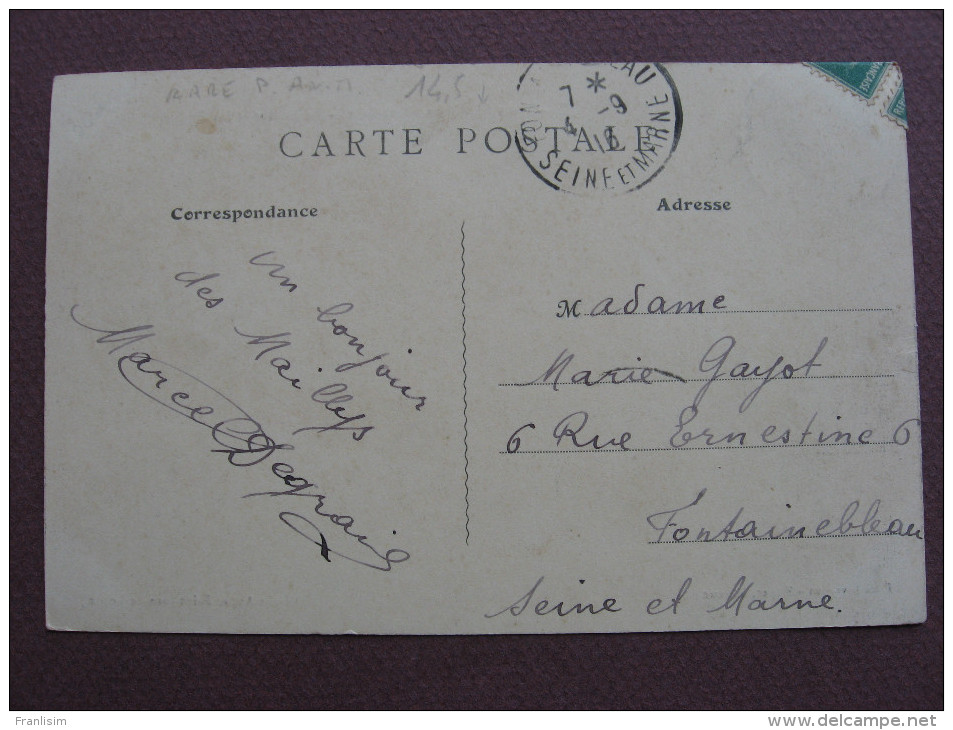 14,5
CARTE POSTALE
EAU
7 *
4 -9
SEINE ET MARNE
Correspondance
Adresse
un bonjour
des Maillys
Marcel Degrain
Madame
Marie Gayot
6 Rue Ernestine 6
Fontainebleau
Seine et Marne.
Franlisim
www.delcampe.net